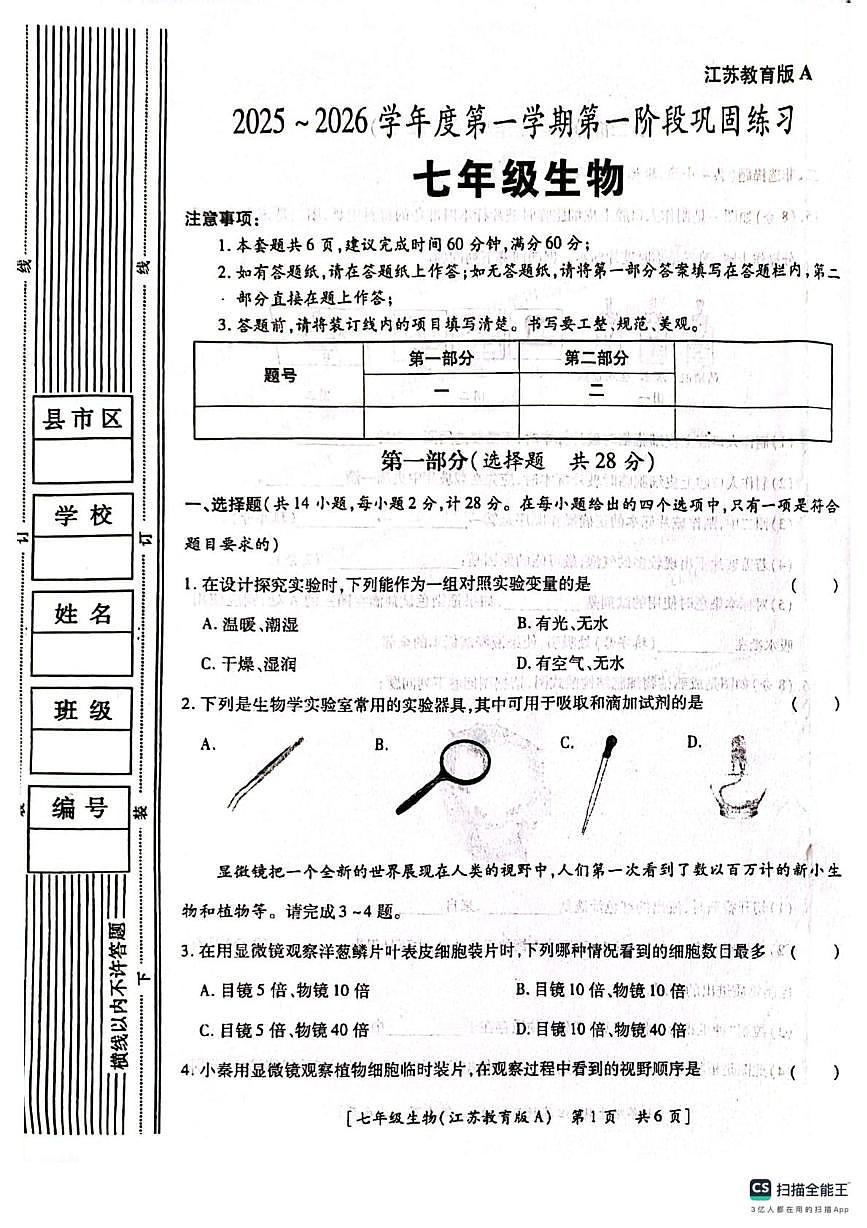 江苏教育版 A
2025~2026学年度第一学期第一阶段巩固练习
七年级生物
注意事项:
1. 本套题共6页,建议完成时间60分钟,满分60分;
2. 如有答题纸,请在答题纸上作答;如无答题纸,请将第一部分答案填写在答题栏内,第二
部分直接在题上作答;
3. 答题前,请将装订线内的项目填写清楚。书写要工整、规范、美观。
题号 第一部分 第二部分
一 二
第一部分(选择题 共28分)
一、选择题(共14小题,每小题2分,计28分。在每小题给出的四个选项中,只有一项是符合
题目要求的)
1. 在设计探究实验时,下列能作为一组对照实验变量的是 ( )
A. 温暖、潮湿 B. 有光、无水
C. 干燥、湿润 D. 有空气、无水
2. 下列是生物学实验室常用的实验器具,其中可用于吸取和滴加试剂的是 ( )
A. B. C. D.
显微镜把一个全新的世界展现在人类的视野中,人们第一次看到了数以百万计的新小生
物和植物等。请完成3~4题。
3. 在用显微镜观察洋葱鳞片叶表皮细胞装片时,下列哪种情况看到的细胞数目最多 ( )
A. 目镜5倍、物镜10倍 B. 目镜10倍、物镜10倍
C. 目镜5倍、物镜40倍 D. 目镜10倍、物镜40倍
4. 小秦用显微镜观察植物细胞临时装片,在观察过程中看到的视野顺序是 ( )
[七年级生物(江苏教育版A) 第1页 共6页]
县市区
学校
姓名
班级
编号
横线以内不许答题
线
订
装
下
线
订
CS 扫描全能王
3亿人都在用的扫描App